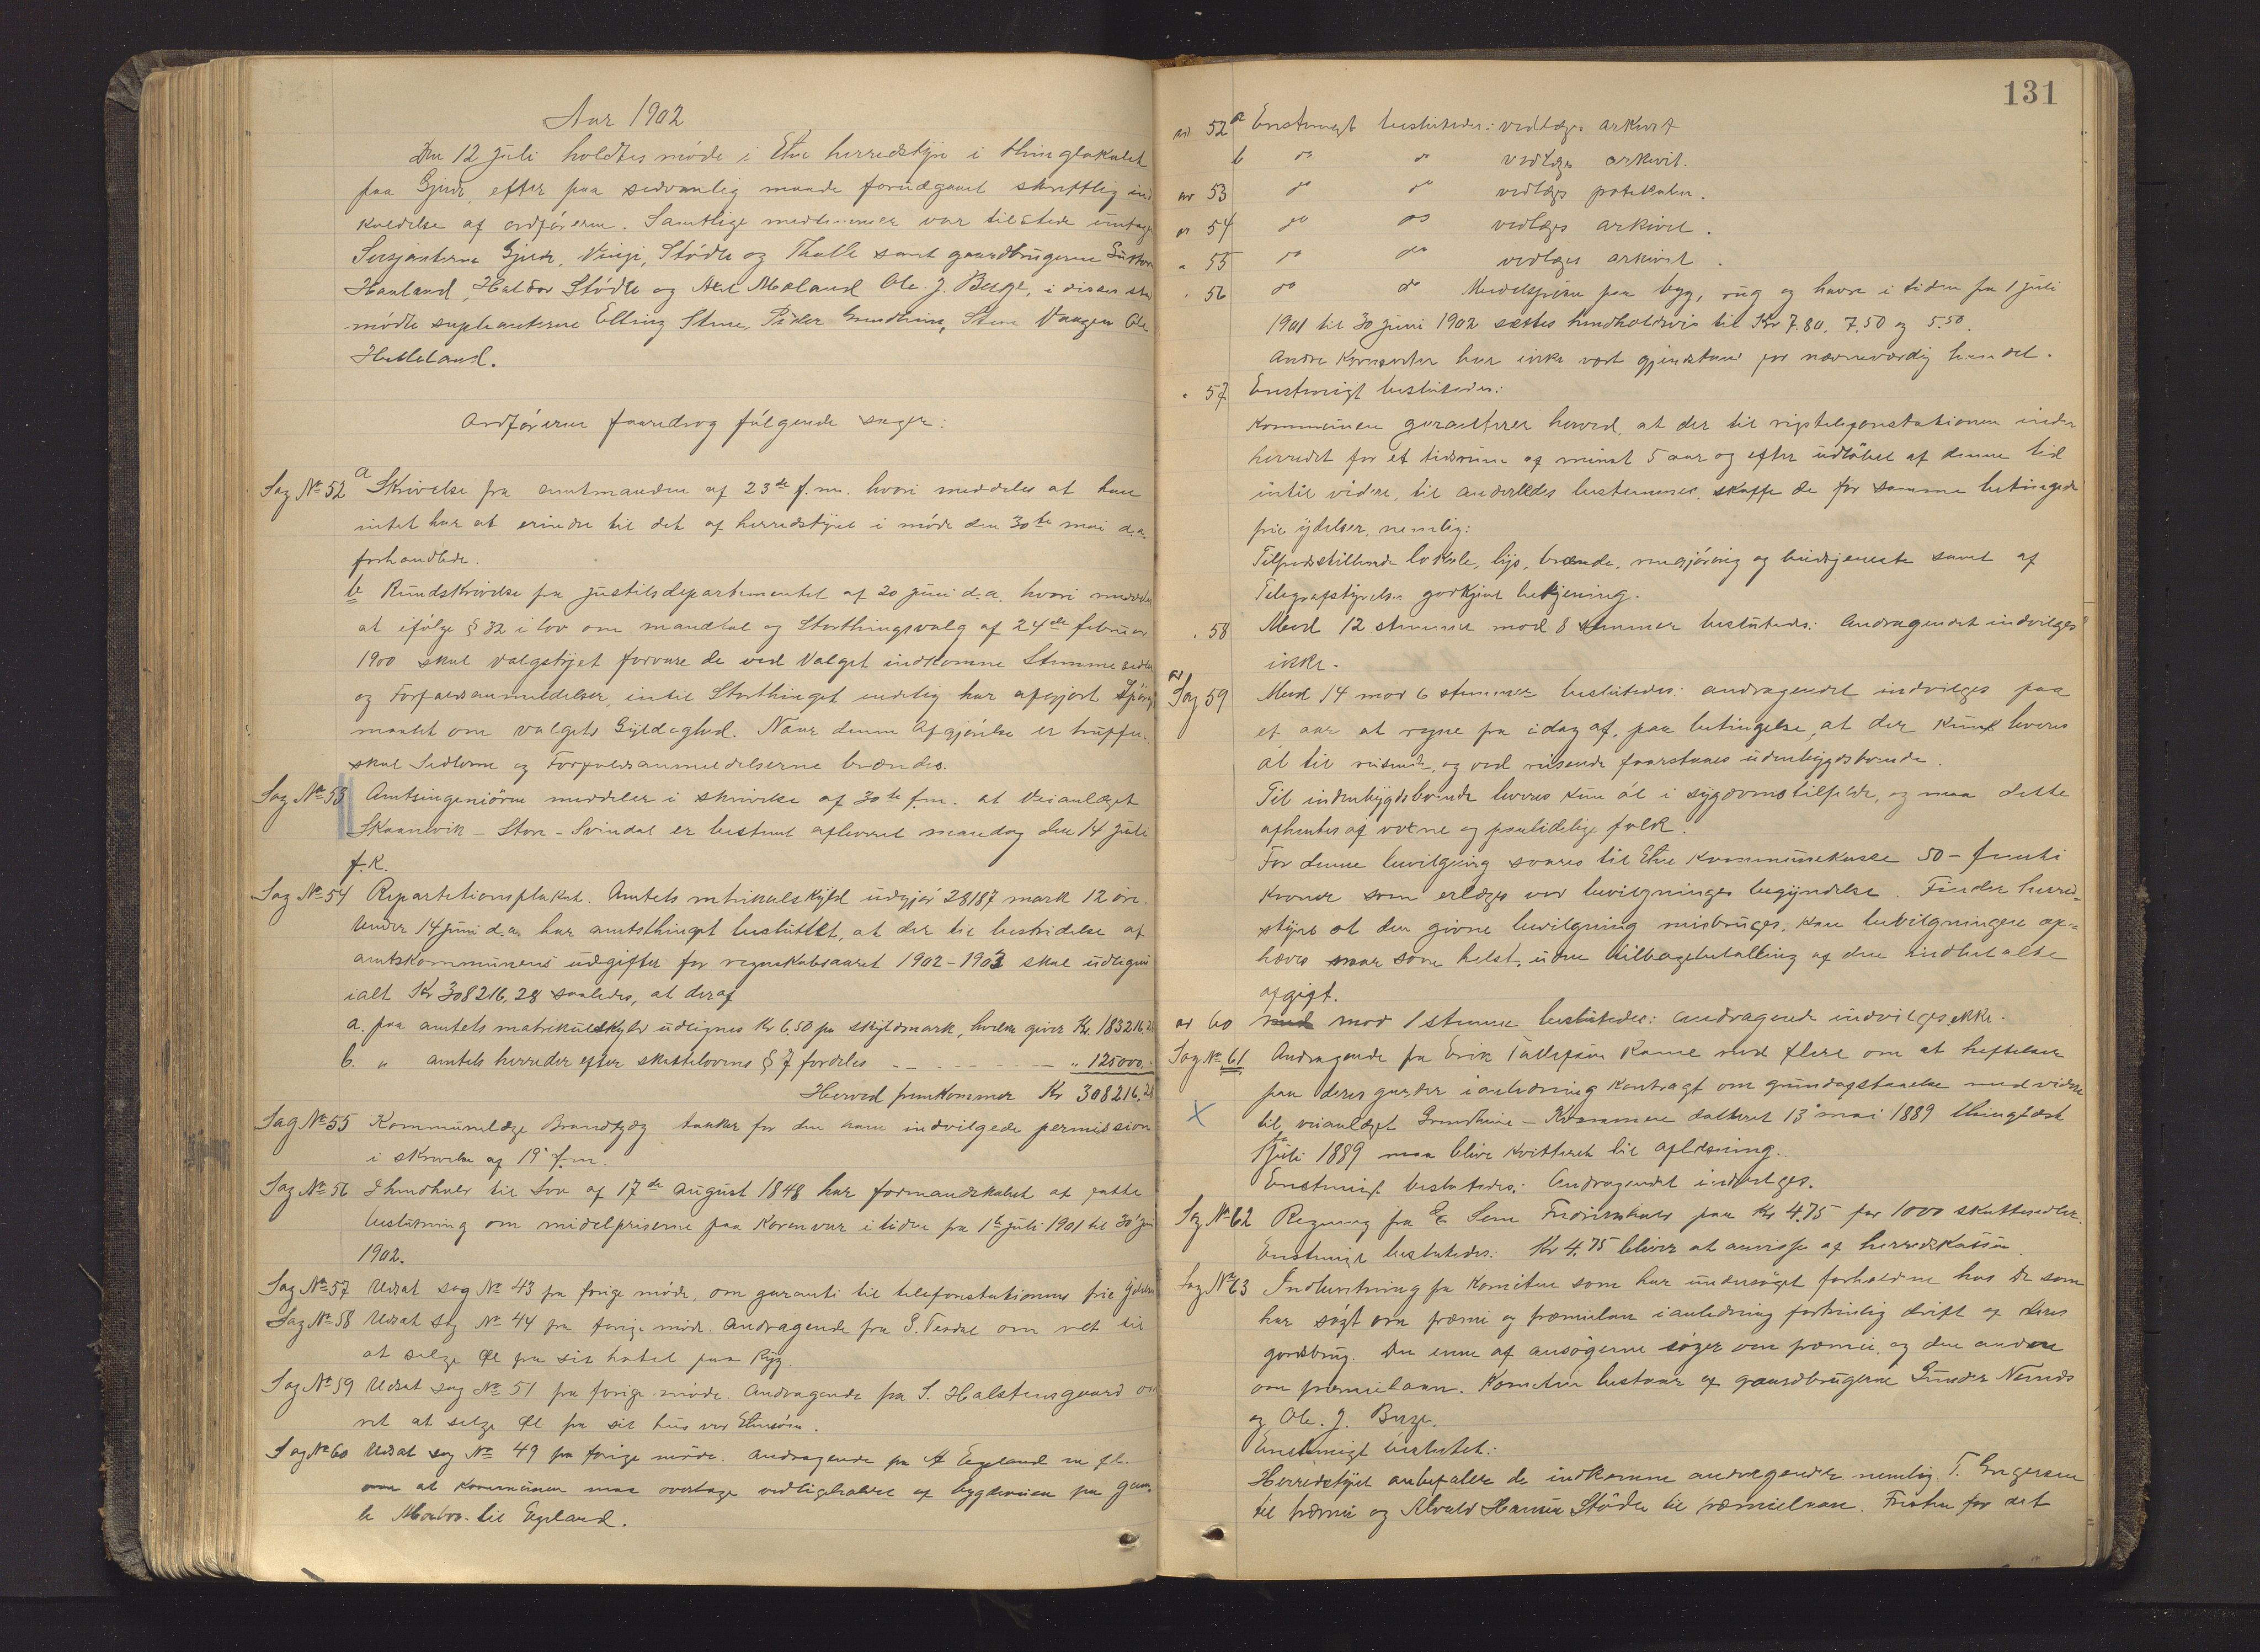 Aar 1902
Den 12 juli holdtes møde i Etne herredstyre i thinglokalet
paa Gjerde, efter paa sedvanlig maade forudgaaet skriftlig ind
kaldelse af ordføreren. Samtlige medlemmer var tilstede untagen
Sersjanterne Gjerde, Vinje, Stødle og Thalle samt gaardbrugerne
Houland, Haldor Stødle og Axel Moland Ole. J. Berge, i disses sted
mødte suplianterne Elling Stene, Peder Grindheim, Sten Vaagen Ole
Hetleland.
Ordføreren foredrog følgende sager:
Sag No 52 a Skrivelse fra amtmanden af 23de f.m. hvori meddeles at han
intet har at erindre til det af herredstyret i møde den 30te mai d.a.
forhandlede.
b Rundskrivelse fra justitsdepartementet af 20 juni d.a. hvori meddeles
at ifølge § 32 i lov om mandtal og Storthingsvalg af 24de februar
1900 skal valgstyret forvare de ved Valget indkomne Stemmesedler
og Forfaldsanmeldelser, intil Storthinget endelig har afgjort Spørgs
maalet om valgets Gyldighed. Naar denne Afgjørelse er truffen
skal Sedlerne og Forfaldsanmeldelserne brændes.
Sag No 53 Amtsingeniøren meddeler i skrivelse af 30te f.m. at Veianlæget
Skaanevik - Store - Svindal er bestemt afleveret mandag den 14 juli
f.k.
Sag No 54 Repartetionsplakat. Amtets matrikulskyld udgjør 28187 mark 12 øre.
Under 14 juni d.a. har amtsthinget besluttet, at der til bestridelse af
amtskommunens udgifter for regnskabsaaret 1902-1903 skal udlignes
ialt Kr 308216,28 saaledes, at deraf
a. paa amtets matrikulskyld udlignes Kr 6,50 pr skyldmark, hvilke giver Kr. 183216,28
b. " amtets herreder efter skattelovens § 7 fordeles - - - - - - " 125000.-
Herved fremkommer Kr 308216,28
Sag No 55 Kommunelæge takker for den ham indvilgede permission
i skrivelse af 19' f.m.
Sag No 56 I henhold til Lov af 17de august 1848 har formandskabet at fatte
beslutning om midelpriserne paa Kornvar i tiden fra 1te juli 1901 til 30' juni
1902.
Sag No 57 Udsat sag No 43 fra forige møde, om garanti til telefonstationens frie Ydelser
Sag No 58 Udsat sag No 44 fra forige møde. Andragende fra S. Tesdal om ret til
at selge Øl fra sit hotel paa Ryg.
Sag No 59 Udsat sag No 51 fra forige møde. Andragende fra S. Halstensgaard om
ret at selge Øl fra sit hus ved Etnesøen.
Sag No 60 Udsat sag No 49 fra forige møde. Andragende fra A Egeland m fl.
om at kommunen maa overtage vedligeholdet af bygdeveien fra gam
le til Egeland.
131
ad 52 a Enstemigt beslutedes: vedlægs arkivet
b do do vedlægs arkivet.
ad 53 do do vedlægs protokolen.
ad 54 do do vedlægs arkivet.
" 55 do do vedlægs arkivet.
" 56 do do Medelprisen paa byg, rug og havre i tiden fra 1 juli
1901 til 30 juni 1902 sættes henholdsvis til Kr 7.80, 7.50 og 5.50.
Andre Kornsorter har ikke vært gjenstand for nævneverdig handel.
" 57 Enstemigt beslutedes:
Kommunen garanterer herved, at der til rigstelefonstationen inden
herredet for et tidsrum af minst 5 aar og efter udløbet af denne tid
intil videre, til anderledes bestemmes, skaffe de for samme betingede
frie ydelser, nemlig:
Tilfredsstillende lokale, lys, brænde, rengjøring og budtjeneste samt af
Telegrafstyrelsen godkjent betjening.
" 58 Med 12 stemmer mod 8 stemmer beslutedes: Andragendet indvilges
ikke.
ad Sag 59 Med 14 mod 6 stemmer beslutedes: andragendet indvilges paa
et aar at regne fra idag af, paa betingelse, at der kun leveres
øl til reisende, og ved reisende forstaaes udenbygdsboende.
Til indenbygdsboende leveres kun øl i sygdomstilfelde, og maa dette
afhentes af voxne og paalidelige folk.
For denne bevilgning svares til Etne Kommunekasse 50 - femti
kroner som erlægges ved bevilgningens begyndelse. Finder herred-
styret at den givne bevilgning misbruges, kan bevilgningen op-
hæves naar som helst, uden tilbagebetalling af den indbetalte
afgift.
ad 60 med mod 1 stemme beslutedes: andragende indvilges ikke.
Sag No 61 Andragende fra Erik Tollefsen Rame med flere om at heftelser
paa deres garder i anledning Kontragt om grundafstaaelse med videre
til veianlæget Grindheim - Krommene datteret 13' mai 1889 thinglæst
1 juli 1889 maa blive kvitteret til aflæsning.
Enstemigt beslutedes: Andragendet indvilges.
Sag No 62 Regning fra paa Kr 4.75 for 1000 skattesedler.
Enstemigt beslutedes: Kr 4.75 bliver at anvise af herredskassen.
Sag No 63 Indberetning fra Komiteen som har undersøgt forholdene hos de som
har søgt om præmi og præmielaan i anledning fortrinlig drift af deres
gardsbrug. Den ene af ansøgerne søger om præmie, og den anden
om præmielaan. Komiteen bestaar af gaardbrugerne Gunder
og Ole. J. Berge.
Enstemigt beslutet:
Herredstyret anbefaler de indkomne andragender nemlig T. Ingersen
til præmie og Alvald Hansen Stødle til præmielaan. for det